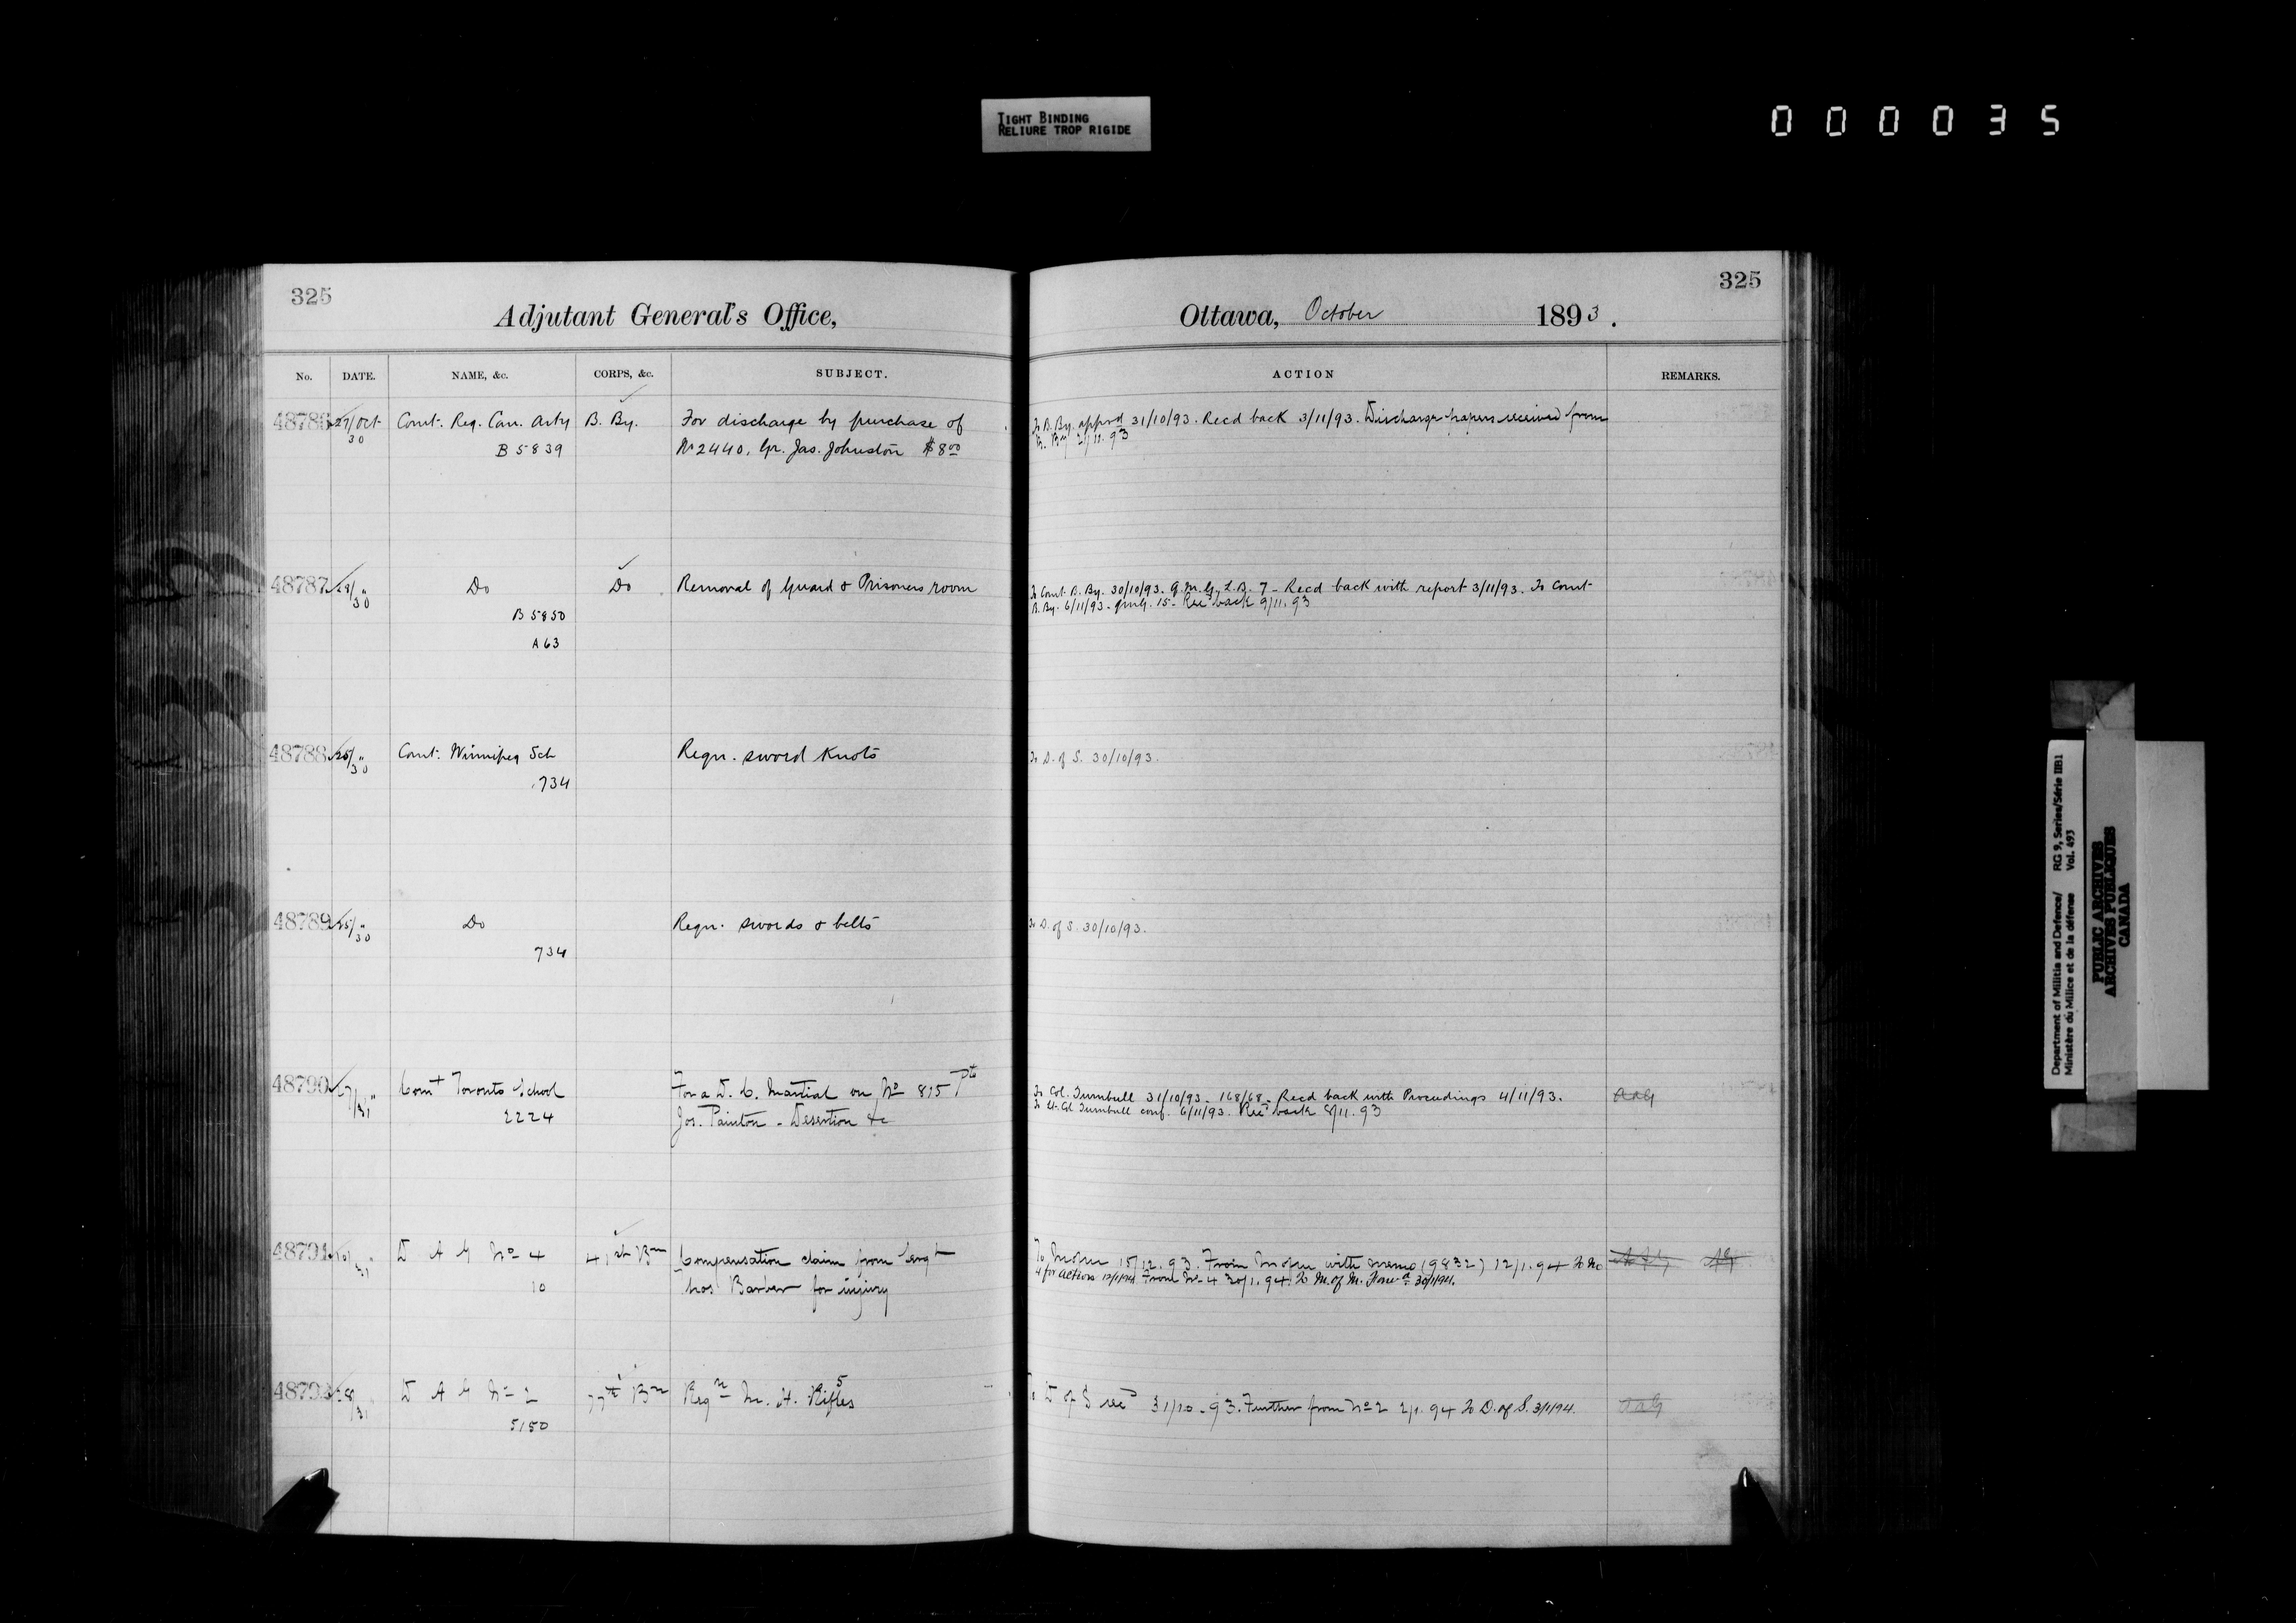 TIGHT BINDING
RELIURE TROP RIGIDE
000035
325
Adjutant General's Office,
No. DATE. NAME, &c. CORPS, &c. SUBJECT.
48786 27/Oct Comt. Reg. Can. Arty B. By. For discharge by purchase of
30 B 5839 No 2440. Gr. Jas. Johnston $8.00
48787 28/" Do Do Removal of Guard & Prisoners room
30 B 5850
A 63
48788 25/" Comt. Winnipeg Sch Reqn. sword knots
30 734
48789 25/" Do Reqn. swords & belts
30 734
48790 27/" Comt Toronto School For a D. C. Martial on No 815 Pte
31 2224 Jos. Painton - Desertion &c
48791 D A G No 4 41st Bn Compensation claim from Sergt
31 10 Thos Barber for injury
48792 28/" D A G No 2 77th Bn Reqn M. H. Rifles
31 5150
325
Ottawa, October 1893.
ACTION REMARKS.
To B. By. approd 31/10/93. Recd back 3/11/93. Discharge papers received from
B. By 2/11.93
To Comt. B. By. 30/10/93. Q.M.G. L.B. 7 - Recd back with report 3/11/93. To Comt
B. By. 6/11/93. qmg. 15 - Recd back 9/11.93
To D. of S. 30/10/93.
To D. of S. 30/10/93.
To Col. Turnbull 31/10/93 - 168/68 - Recd back with Proceedings 4/11/93. AAG
To Lt. Col Turnbull conf. 6/11/93. Recd back 8/11.93
To MofM 15/12.93. From MofM with memo (9832) 12/1.94 To No
4 for action 12/1/94 From No 4 30/1.94. To M. of M. 30/1/94.
To D of S 31/10.93. Further from No 2 2/1.94 To D. of S. 3/1/94. AAG
Department of Militia and Defence/ RG 9, Series/Série IIB1
Ministère du Milice et de la défense Vol. 493
PUBLIC ARCHIVES
ARCHIVES PUBLIQUES
CANADA